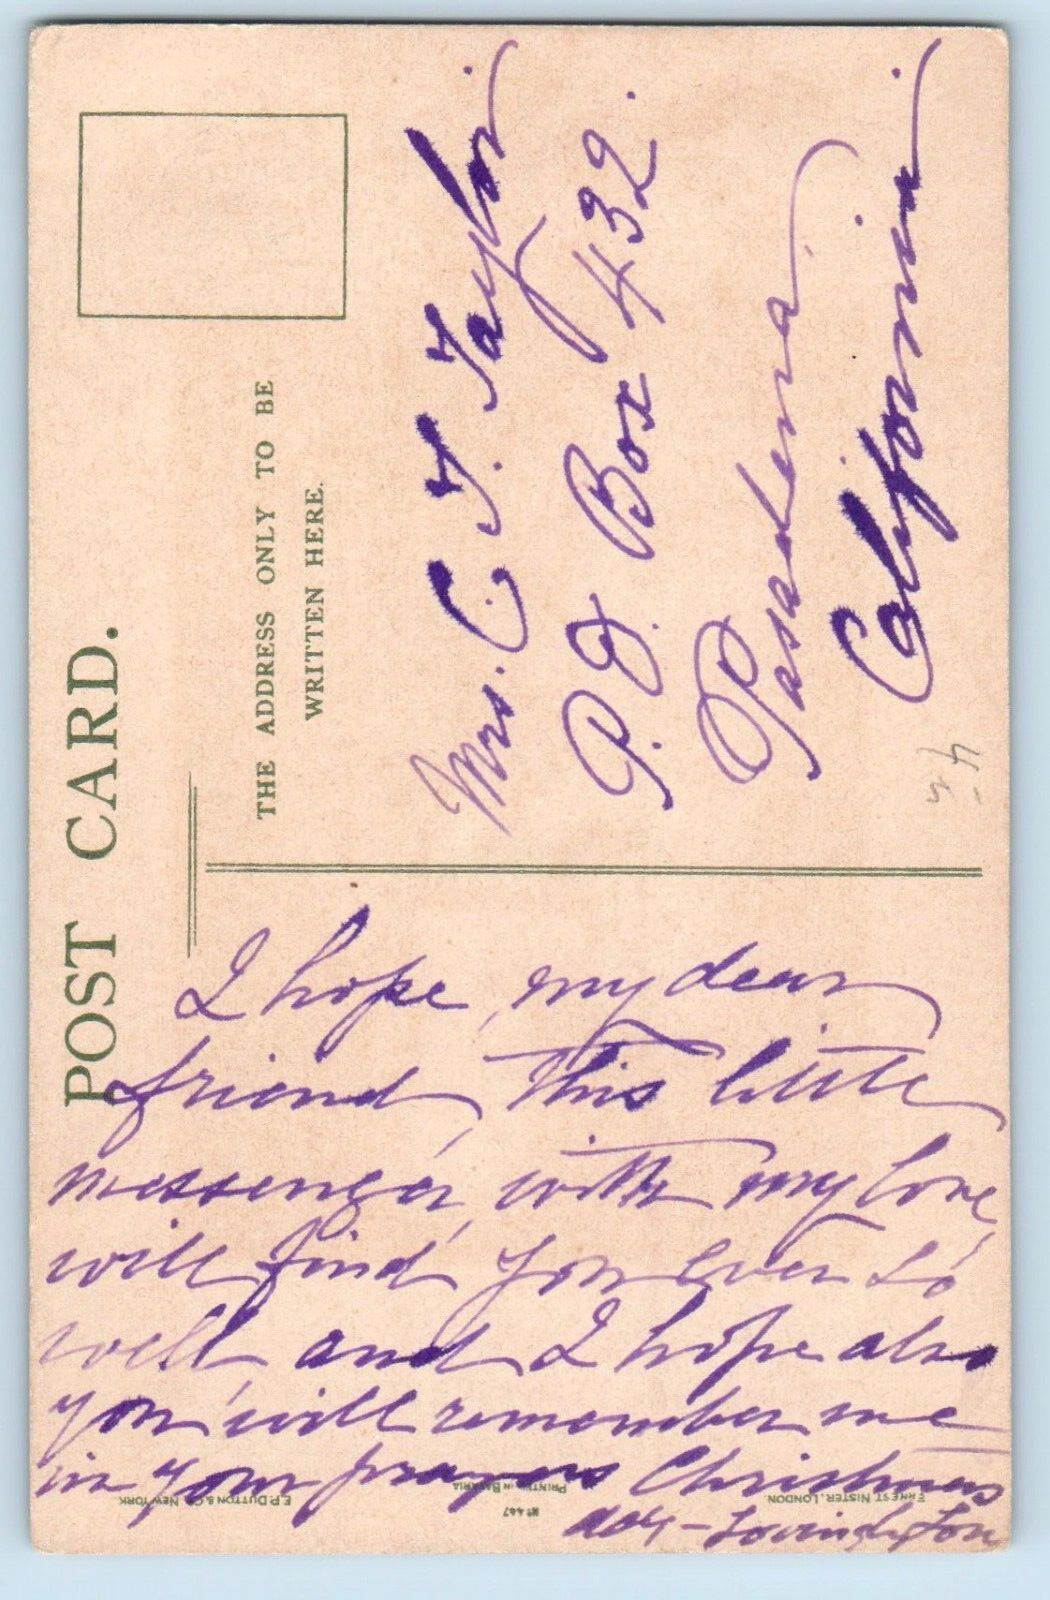 POST CARD.
THE ADDRESS ONLY TO BE
WRITTEN HERE.
Mrs. C. T. Taylor
P. O. Box 432.
Pasadena
California
I hope, my dear
friend, this little
messenger, with my love,
will find you ever so
well, and I hope also
you will remember me
in your prayers Christmas
day -
E.P. DUTTON & CO. NEW YORK
PRINTED IN BAVARIA
No 447
ERNEST NISTER, LONDON.